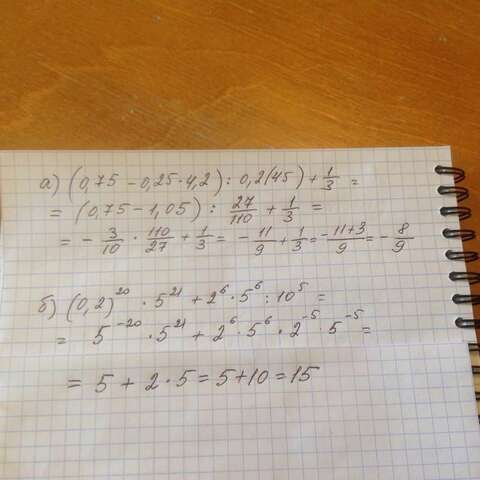 а) (0,75 - 0,25·4,2) : 0,2(45) + 1/3 =
= (0,75 - 1,05) : 27/110 + 1/3 =
= - 3/10 · 110/27 + 1/3 = - 11/9 + 1/3 = (-11+3)/9 = - 8/9
б) (0,2)^20 · 5^21 + 2^6 · 5^6 : 10^5 =
= 5^-20 · 5^21 + 2^6 · 5^6 · 2^-5 · 5^-5 =
= 5 + 2·5 = 5+10 = 15